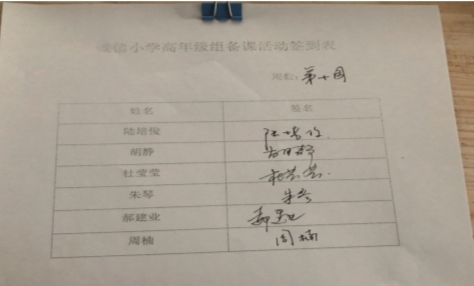 小学高年级组备课活动签到表
周次：第十周
姓名 签名
陆培俊 陆培俊
胡静 胡静
杜莹莹 杜莹莹
朱琴 朱琴
郝建业 郝建业
周楠 周楠